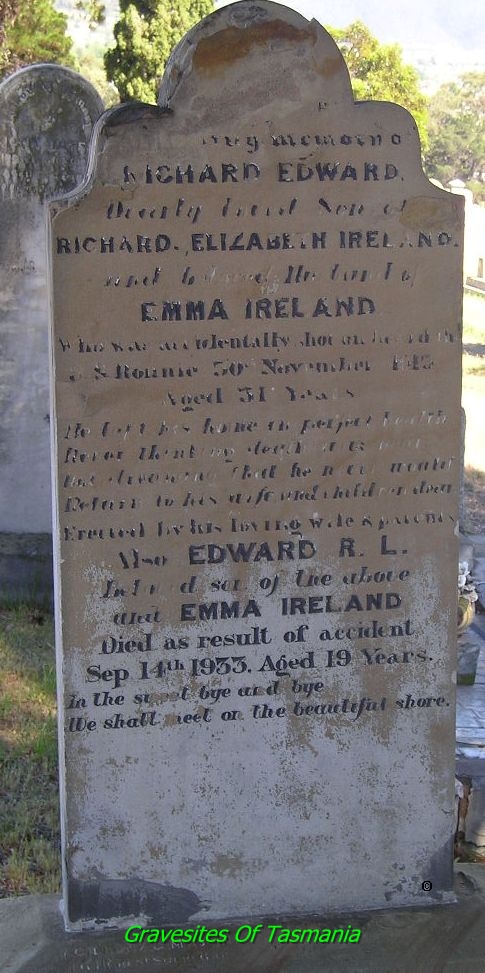 RICHARD EDWARD.
Dearly loved Son of
RICHARD. ELIZABETH IRELAND.
and beloved Husband of
EMMA IRELAND
Who was accidentally shot on board the
S.S Ronnie 30th November
Aged 31 Years
He left his home in perfect health
Never thinking death
that he
Return to his wife and children dear
Erected by his loving wife & parents
Also EDWARD R. L.
son of the above
and EMMA IRELAND
Died as result of accident
Sep 14th 1933. Aged 19 Years.
In the sweet bye and bye
We shall meet on the beautiful shore.
Gravesites Of Tasmania